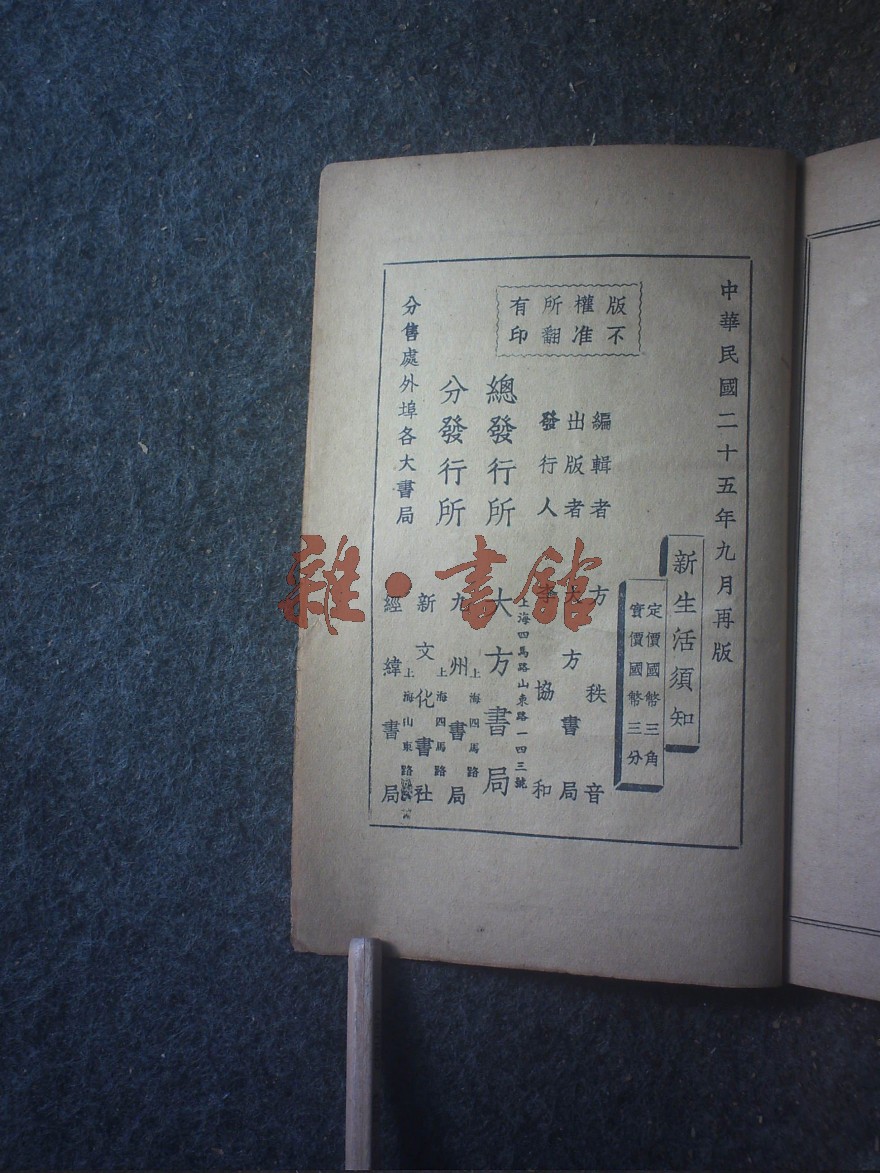 中華民國二十五年九月再版
新生活須知
定價國幣三角
實價國幣三分
版權所有
不准翻印
編輯者 方秩音
出版者 大方書局
發行人 李協和
總發行所 大方書局
上海四馬路山東路一四三號
分發行所
九州書局 上海四馬路
新文化書社 上海四馬路
經緯書局 上海山東路
分售處外埠各大書局
雜·書館